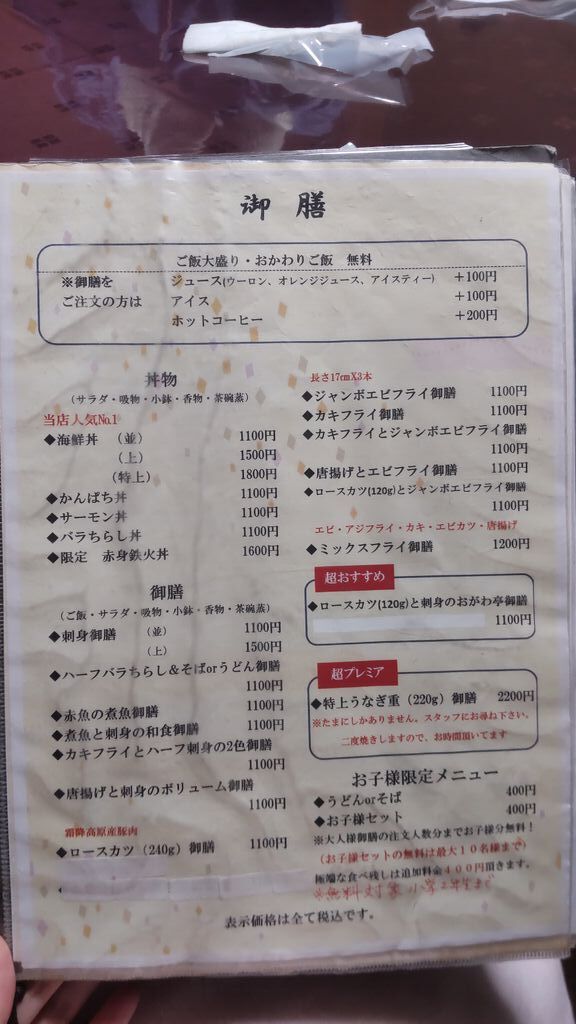 御膳
ご飯大盛り・おかわりご飯 無料
※御膳を
ご注文の方は
ジュース(ウーロン、オレンジジュース、アイスティー) +100円
アイス +100円
ホットコーヒー +200円
丼物
(サラダ・吸物・小鉢・香物・茶碗蒸)
当店人気No.1
◆海鮮丼 (並) 1100円
(上) 1500円
(特上) 1800円
◆かんぱち丼 1100円
◆サーモン丼 1100円
◆バラちらし丼 1100円
◆限定 赤身鉄火丼 1600円
御膳
(ご飯・サラダ・吸物・小鉢・香物・茶碗蒸)
◆刺身御膳 (並) 1100円
(上) 1500円
◆ハーフバラちらし&そばorうどん御膳
1100円
◆赤魚の煮魚御膳 1100円
◆煮魚と刺身の和食御膳 1100円
◆カキフライとハーフ刺身の2色御膳
1100円
◆唐揚げと刺身のボリューム御膳
1100円
霜降高原産豚肉
◆ロースカツ(240g)御膳 1100円
長さ17㎝X3本
◆ジャンボエビフライ御膳 1100円
◆カキフライ御膳 1100円
◆カキフライとジャンボエビフライ御膳
1100円
◆唐揚げとエビフライ御膳 1100円
◆ロースカツ(120g)とジャンボエビフライ御膳
1100円
エビ・アジフライ・カキ・エビカツ・唐揚げ
◆ミックスフライ御膳 1200円
超おすすめ
◆ロースカツ(120g)と刺身のおがわ亭御膳
1100円
超プレミア
◆特上うなぎ重(220g)御膳 2200円
※たまにしかありません。スタッフにお尋ね下さい。
二度焼きしますので、お時間頂いてます
お子様限定メニュー
◆うどんorそば 400円
◆お子様セット 400円
※大人様御膳の注文人数分までお子様分無料！
(お子様セットの無料は最大10名様まで)
極端な食べ残しは追加料金400円頂きます。
※無料対象小学2年生まで
表示価格は全て税込です。